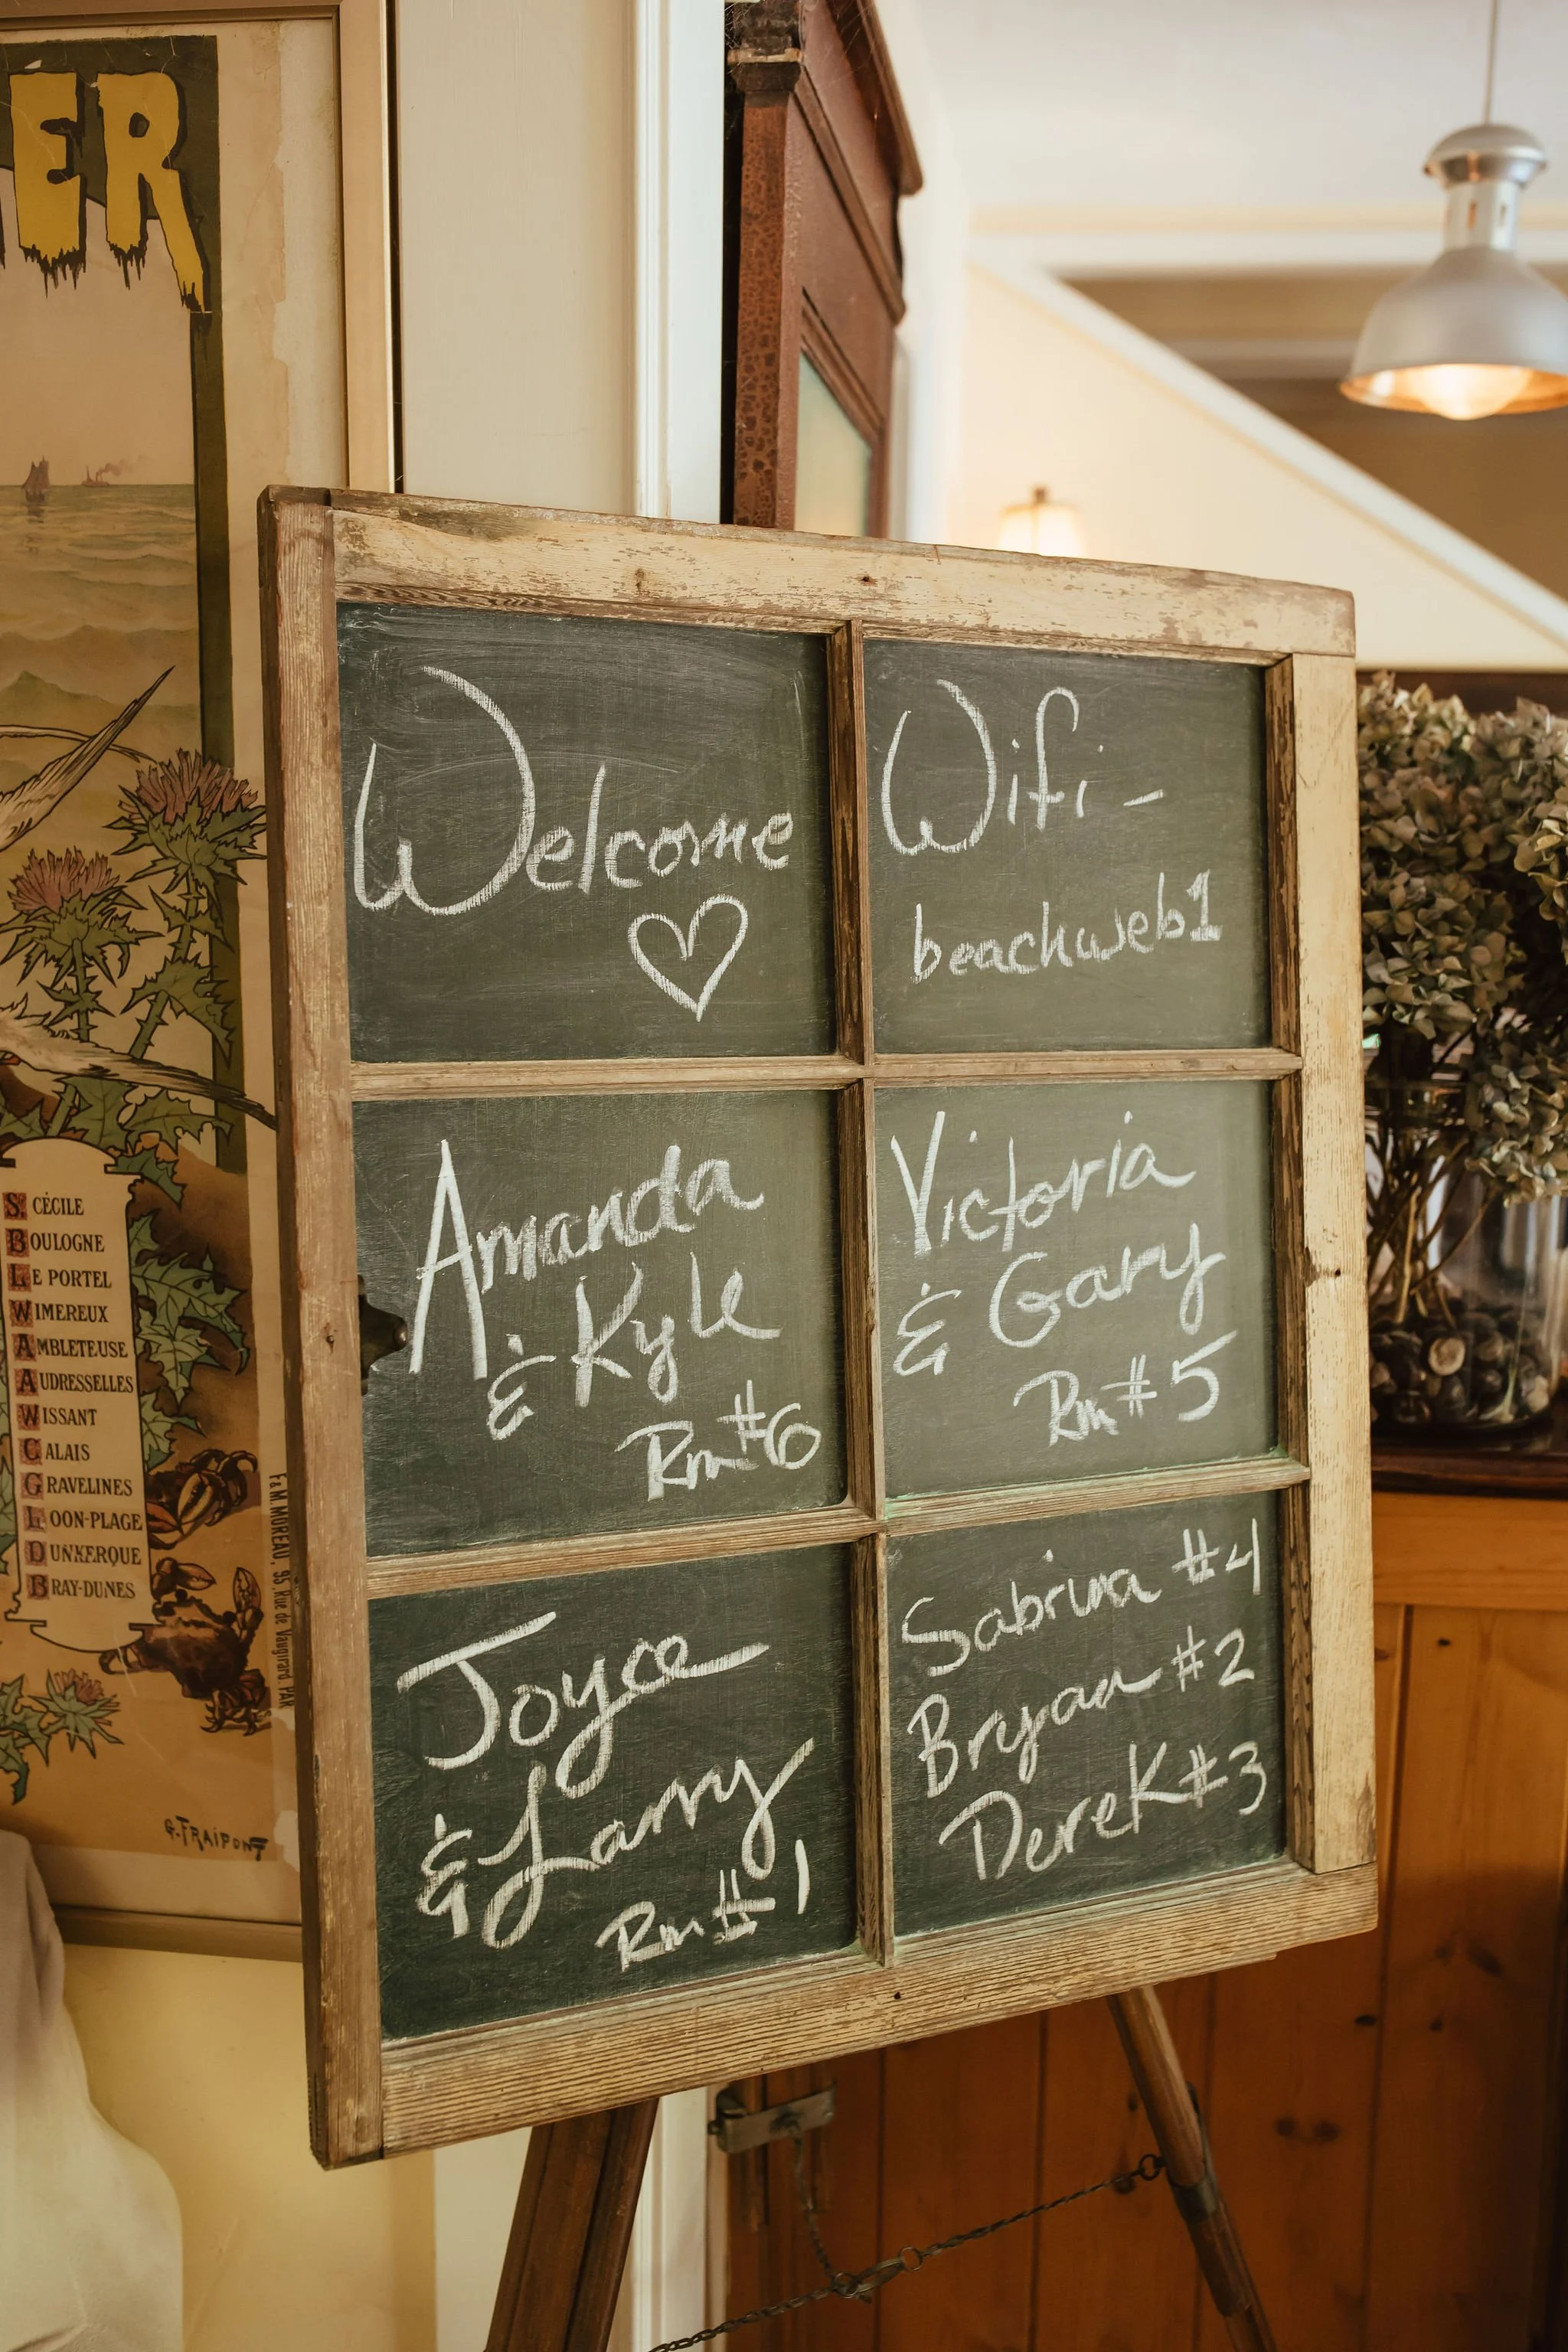 ER
S. CÉCILE
BOULOGNE
LE PORTEL
WIMEREUX
AMBLETEUSE
AUDRESSELLES
WISSANT
CALAIS
GRAVELINES
LOON-PLAGE
DUNKERQUE
BRAY-DUNES
F. & M. MOREAU, 95, Rue de Vaugirard, PAR
G. FRAIPONT
Welcome
♡
Wifi -
beachweb1
Amanda
& Kyle
Rm #6
Victoria
& Gary
Rm #5
Joyce
& Larry
Rm #1
Sabrina #4
Bryan #2
Derek #3